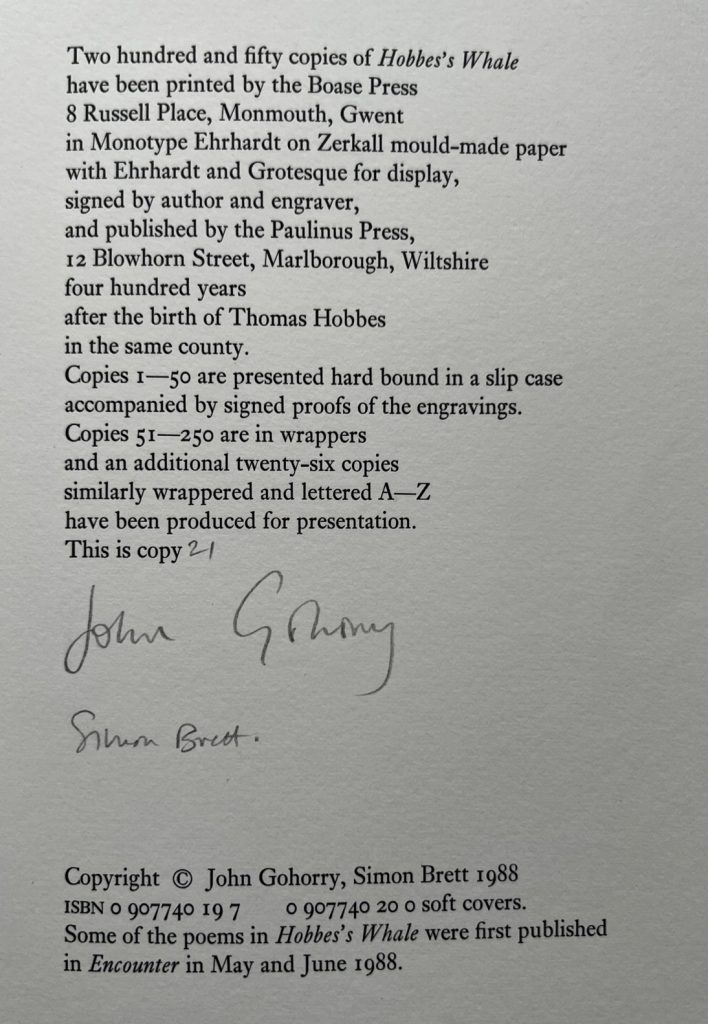 Two hundred and fifty copies of Hobbes's Whale
have been printed by the Boase Press
8 Russell Place, Monmouth, Gwent
in Monotype Ehrhardt on Zerkall mould-made paper
with Ehrhardt and Grotesque for display,
signed by author and engraver,
and published by the Paulinus Press,
12 Blowhorn Street, Marlborough, Wiltshire
four hundred years
after the birth of Thomas Hobbes
in the same county.
Copies 1—50 are presented hard bound in a slip case
accompanied by signed proofs of the engravings.
Copies 51—250 are in wrappers
and an additional twenty-six copies
similarly wrappered and lettered A—Z
have been produced for presentation.
This is copy 21
John Gohorry
Simon Brett.
Copyright © John Gohorry, Simon Brett 1988
ISBN 0 907740 19 7 0 907740 20 0 soft covers.
Some of the poems in Hobbes's Whale were first published
in Encounter in May and June 1988.